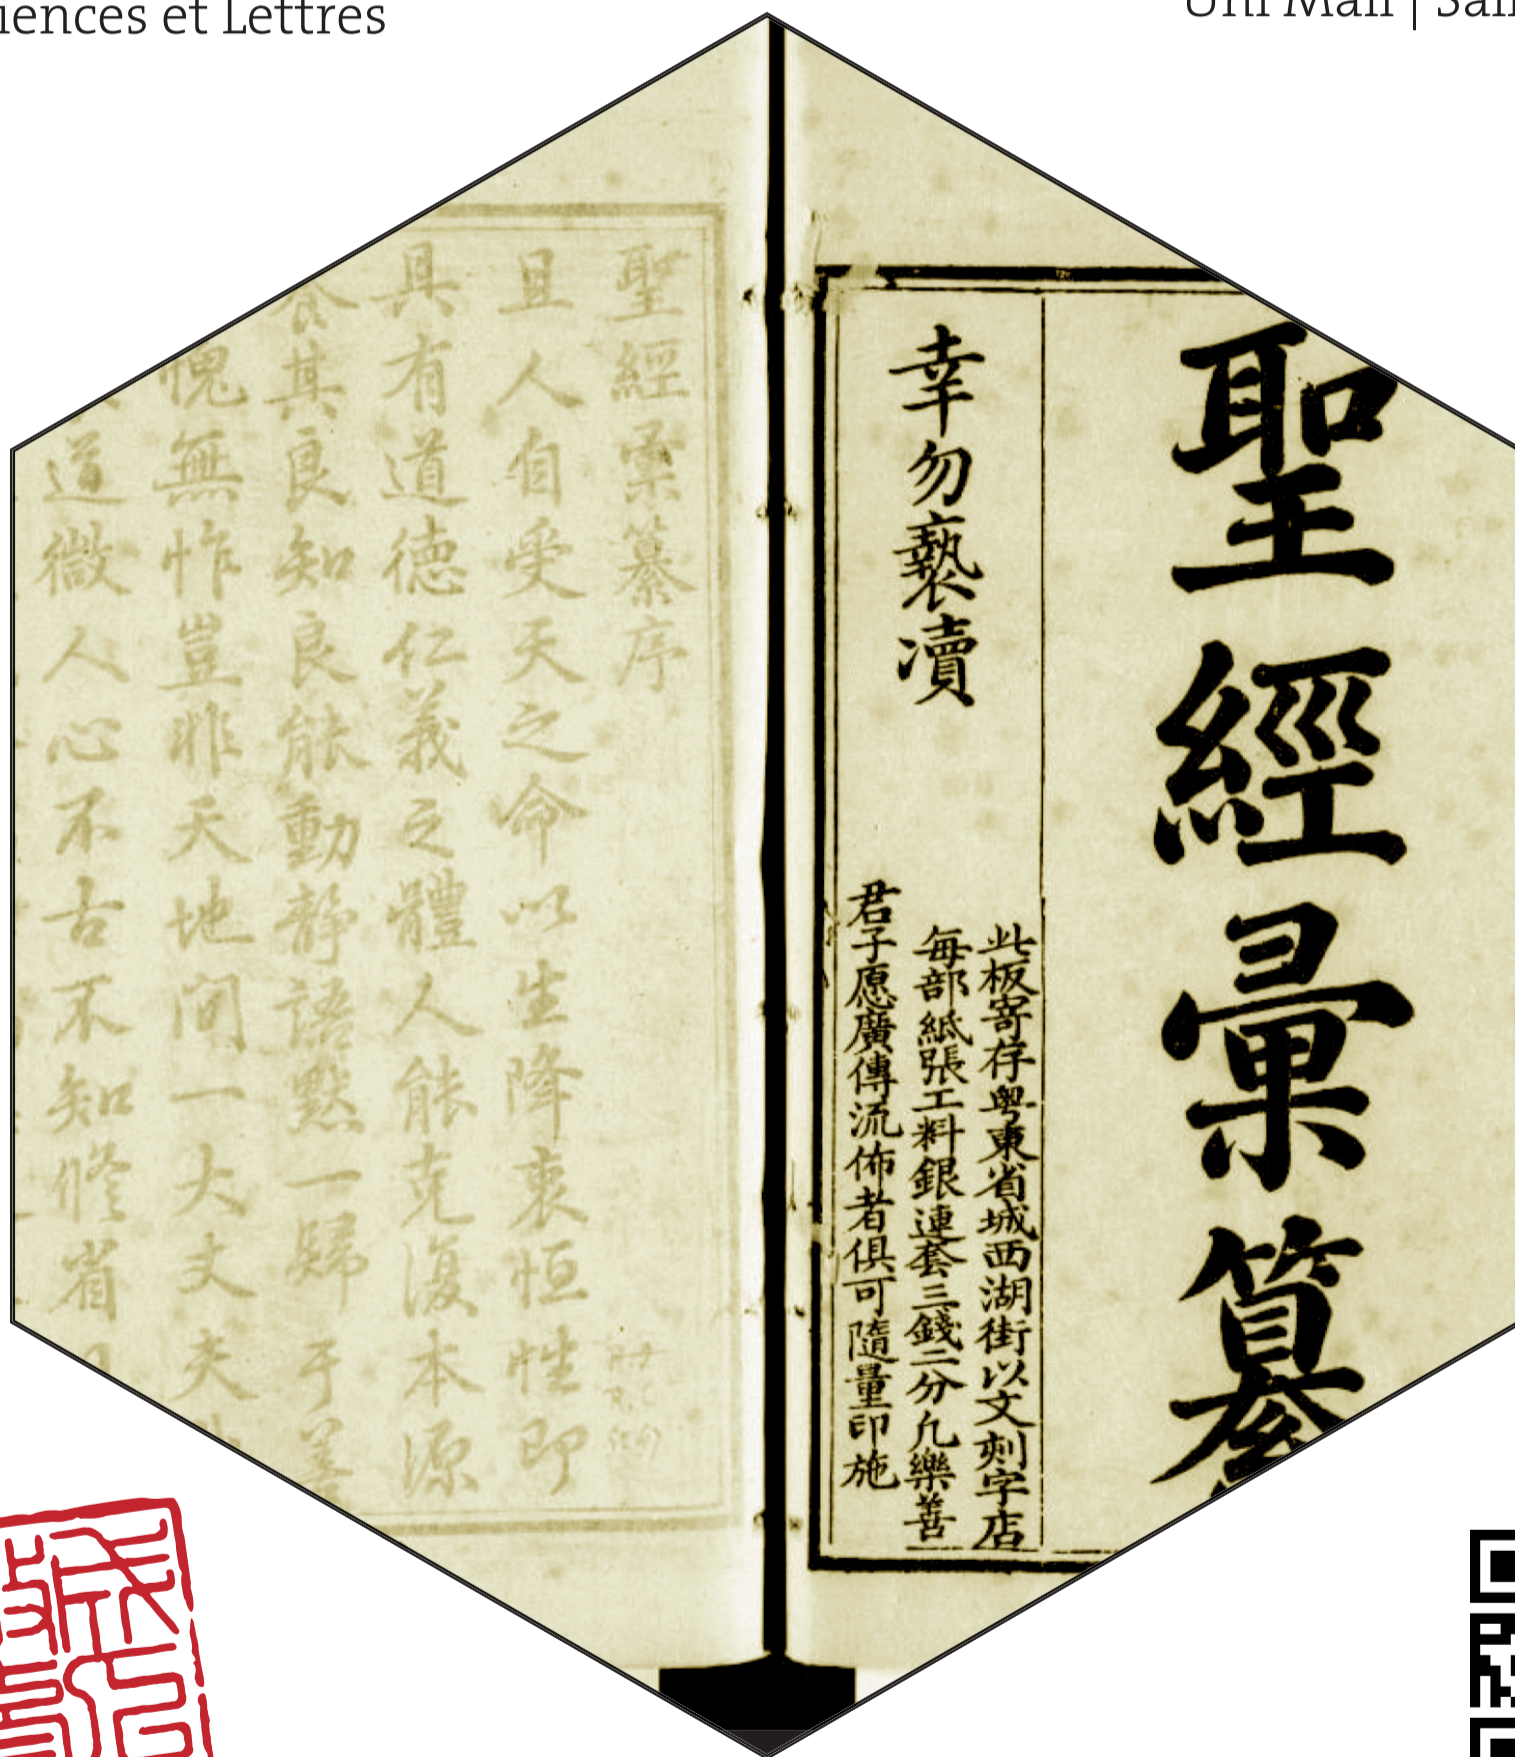 iences et Lettres
Uni Mail | Sal
聖經彙纂
此板寄存粤東省城西湖街以文刻字店
每部紙張工料銀連套三錢二分凢樂善
君子愿廣傳流佈者俱可隨量印施
幸勿褻瀆
聖經彙纂序
且人自受天之命以生降衷恒性即
具有道德仁義之體人能克復本源
養其良知良能動静語黙一歸于善
愧無怍豈非天地間一大丈夫
道微人心不古不知修省